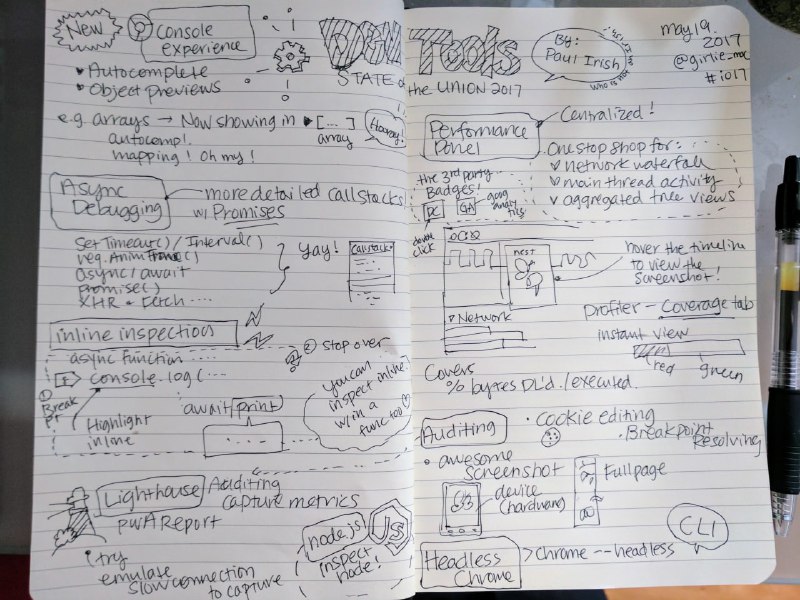 New
Console
experience
• Autocomplete
• Object previews
e.g arrays → Now showing in ▸ […]
array
Hooray!
autocomp!
mapping! Oh my!
Async
Debugging
more detailed callstacks
w/ Promises
SetTimeout()/Interval()
req.AnimFrame()
async/await
promise()
XHR + Fetch ....
Yay!
Callstack
inline inspection
async function ....
console.log(...
① Break
Pt
Highlight
inline
② Stop over
await(print)
You can
inspect inline
w/in a
func too
Lighthouse
Auditing
capture metrics
PWA Report
try
emulate
slow connection
to capture
node.js
JS
inspect
node!
DEV Tools
STATE of the UNION 2017
By:
Paul Irish
who is now
may 19.
2017
@girlie_mac
#io17
Performance
Panel
Centralized!
One stop shop for:
✓ network waterfall
✓ main thread activity
✓ aggregated tree views
the 3rd party
Badges!
DC
GA
goog
double
click
nest
▾ Network
hover the timeline
to view the
Screenshot!
Profiler – Coverage tab
instant view
red
green
Covers
% bytes DL'd./executed.
Auditing
• Cookie editing
• Breakpoint
Resolving
• awesome
Screenshot
device
(hardware)
Fullpage
Headless
Chrome
> chrome --headless
CLI